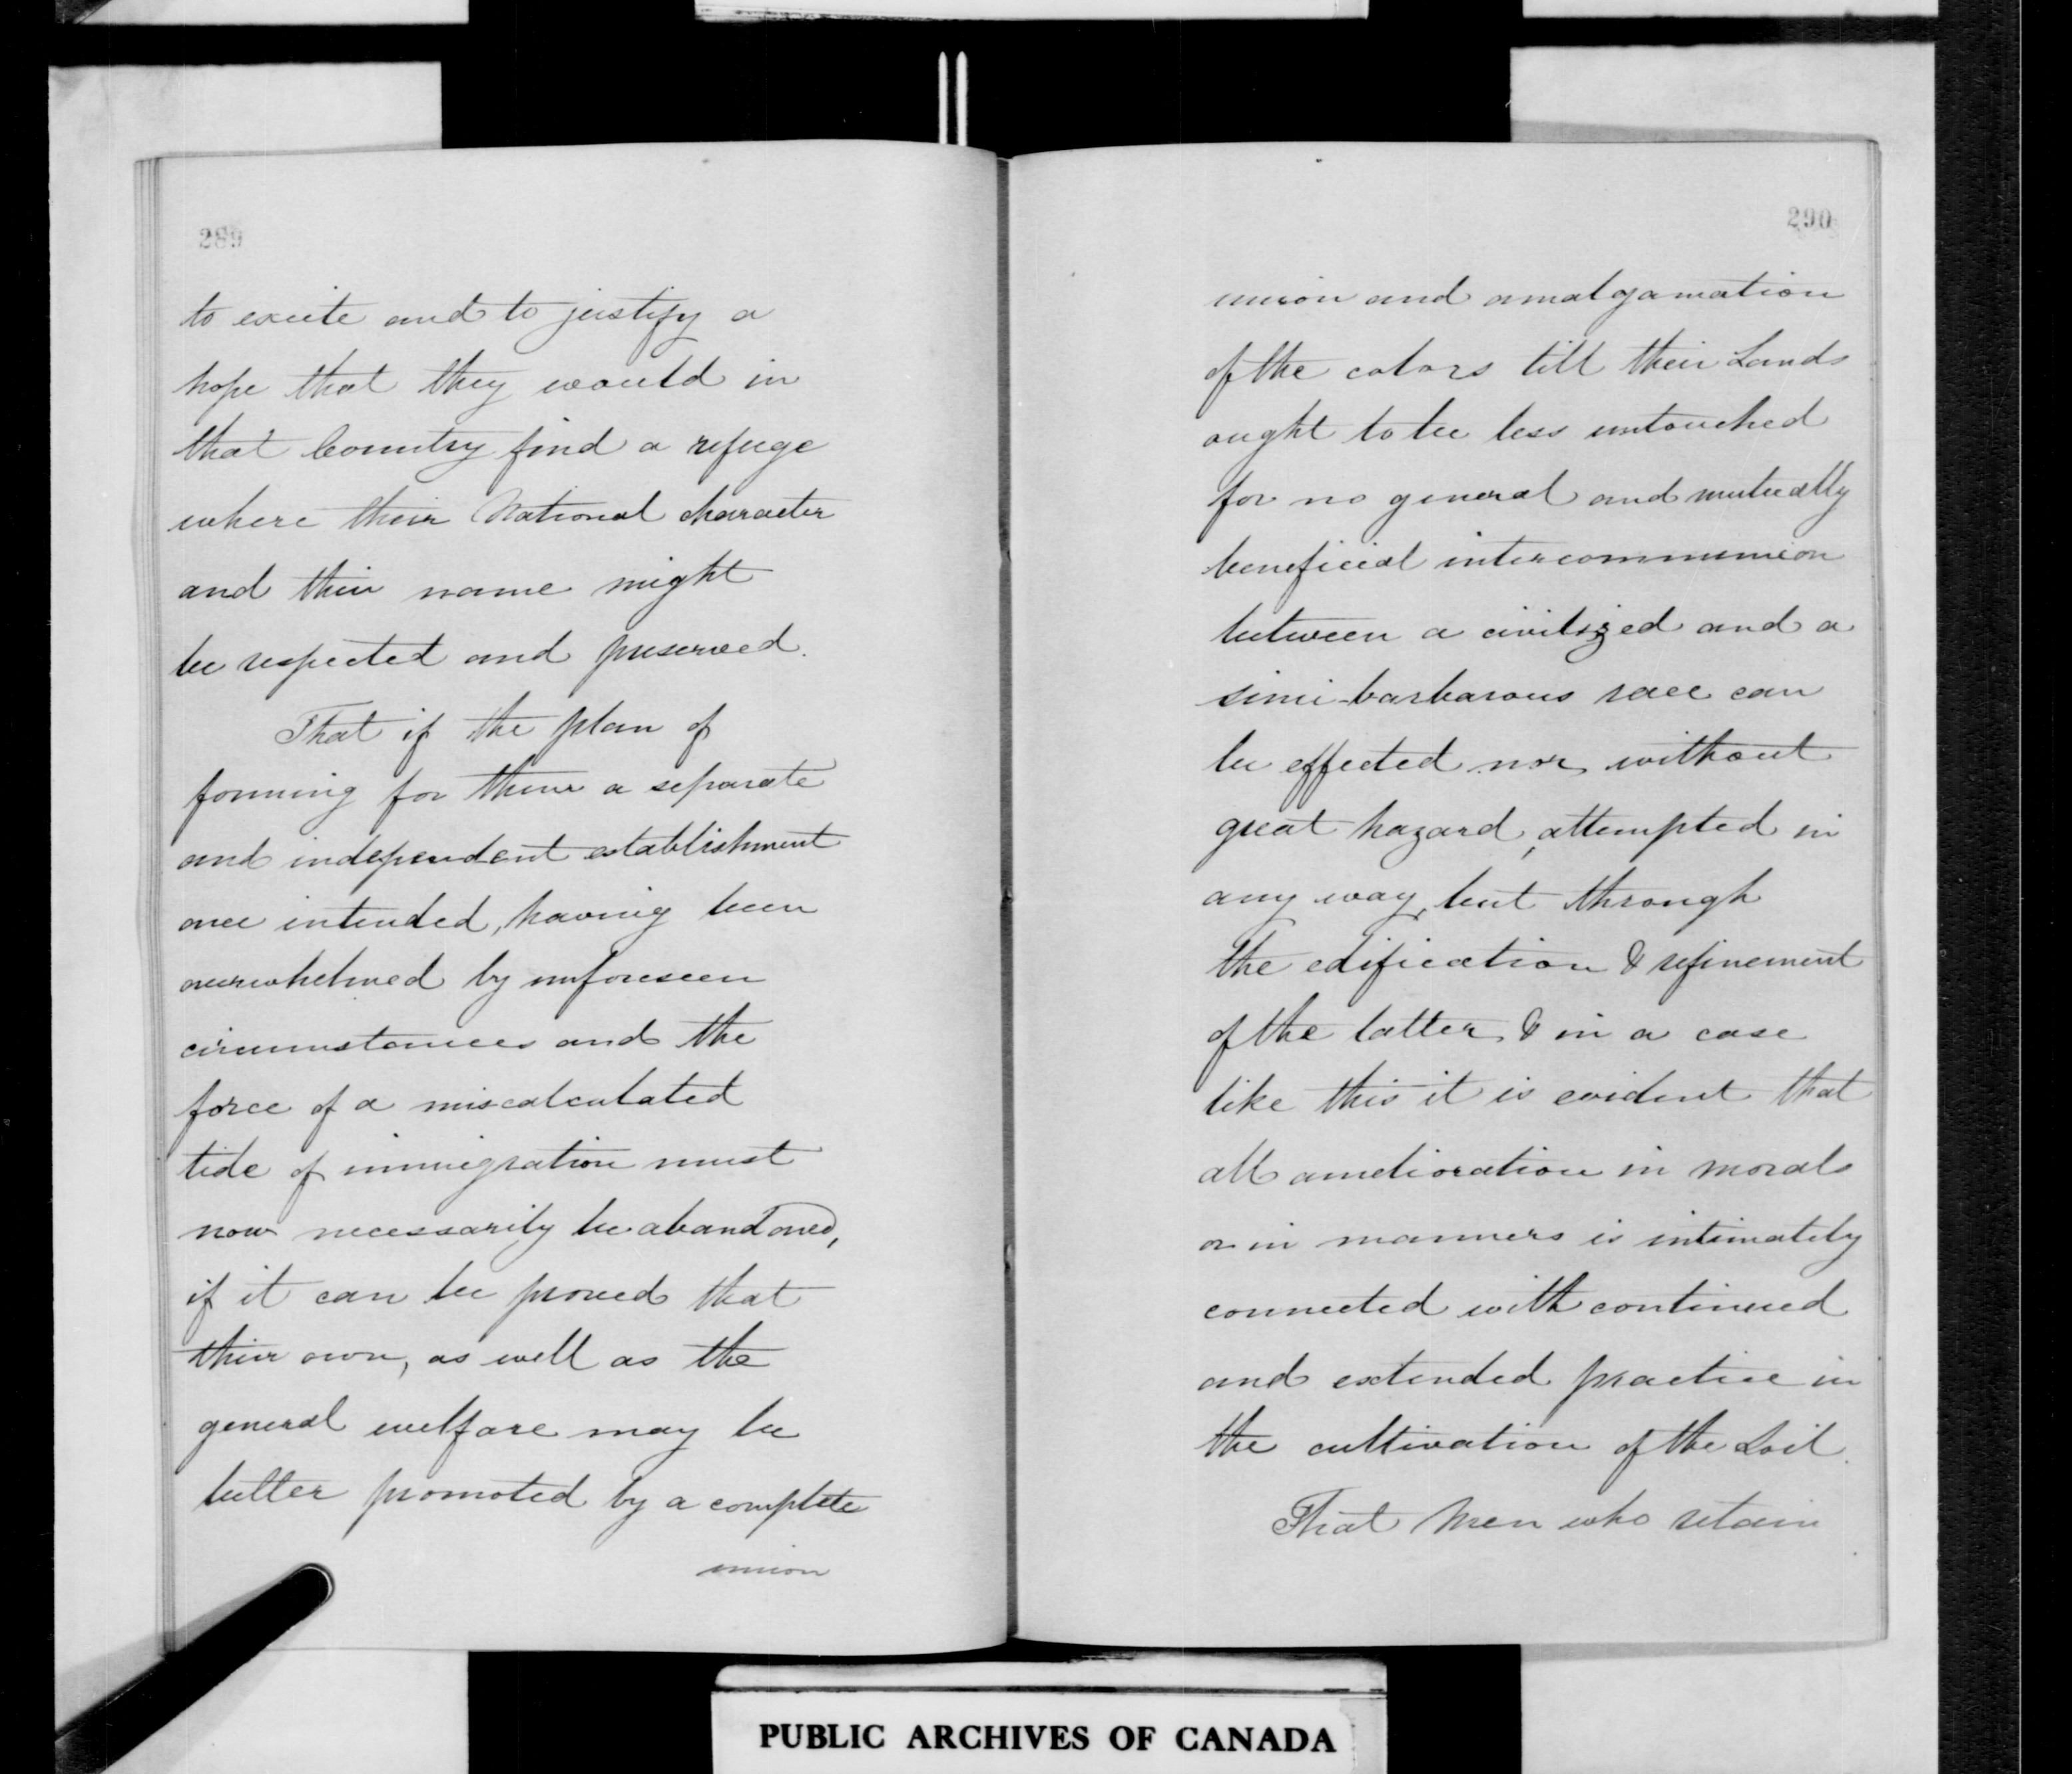 289
to excite and to justify a
hope that they would in
that Country find a refuge
where their National character
and their name might
be respected and preserved.
That if the plan of
forming for them a separate
and independent establishment
once intended, having been
overwhelmed by unforeseen
circumstances and the
force of a miscalculated
tide of immigration must
now necessarily be abandoned,
if it can be proved that
their own, as well as the
general welfare may be
better promoted by a complete
union
290
union and amalgamation
of the colors till their Lands
ought to be less untouched
for no general and mutually
beneficial intercommunion
between a civilized and a
simi-barbarous race can
be effected nor without
great hazard, attempted in
any way, but through
the edification & refinement
of the latter, & in a case
like this it is evident that
all amelioration in morals
or in manners is intimately
connected with continued
and extended practice in
the cultivation of the Soil.
That Men who retain
PUBLIC ARCHIVES OF CANADA